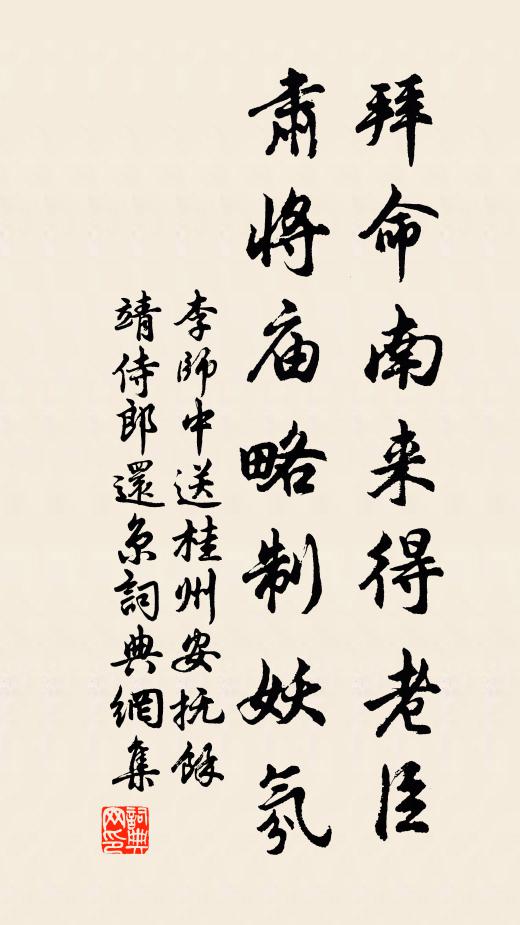 拜命南来得老臣
肃将庙略制妖氛
李師中送桂州安抚餘
靖侍郎還京詞典網集
詞典网印